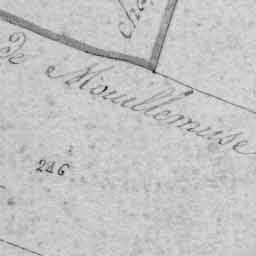 De Mouillemuse
246